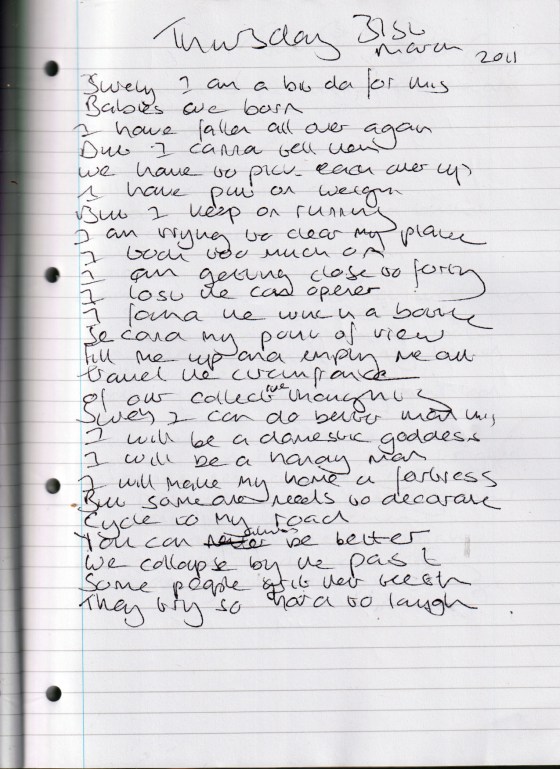 Thursday 31st
March 2011
Surely I am a bit old for this
Babies are born
I have fallen all over again
But I canna tell
we have to pick each other up
I have put on weight
But I keep on running
I am trying to clear my plate
I took too much on
I am getting close to forty
I lost the can opener
I found the world in a bottle
Second my point of view
Fill me up and empty me out
travel the circumfrance
of our collective thoughts
Surely I can do better than this
I will be a domestic goddess
I will be a handy man
I will make my home a fortress
But someone needs to decorate
Cycle to my road
You can always be better
We collapse by the past
Some people grit their teeth
They try so hard to laugh